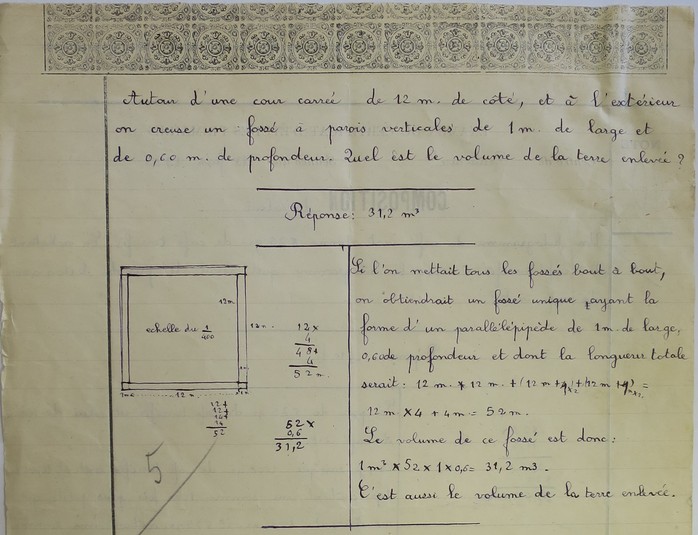 Autour d'une cour carrée de 12 m. de côté, et à l'extérieur
on creuse un fossé à parois verticales de 1 m. de large et
de 0,60 m. de profondeur. Quel est le volume de la terre enlevée ?
COMPOSITION
Réponse: 31,2 m³
12m
echelle du 1/400
12m.
12m.
12+
12+
14+
14
52
5
12 x
4
48+
4
52 m.
52 x
0,6
31,2
Si l'on mettait tous les fossés bout à bout,
on obtiendrait un fossé unique, ayant la
forme d'un parallélépipède de 1 m. de large,
0,60 de profondeur et dont la longueur totale
serait: 12 m. + 12 m. +
12 m. x 4 + 4 m = 52 m.
Le volume de ce fossé est donc:
1 m³ x 52 x 1 x 0,6 = 31,2 m3.
C'est aussi le volume de la terre enlevée.